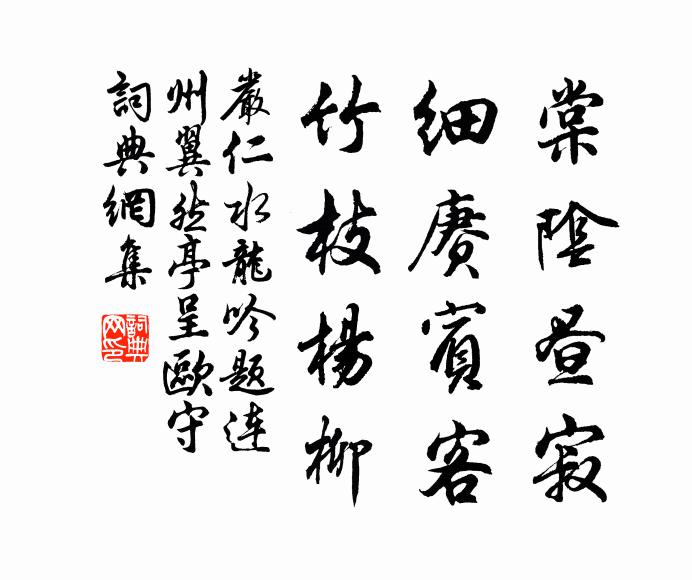 棠陰晝寂
細賡賓客
竹枝楊柳
嚴仁水龍吟題連
州翼然亭呈歐守
詞典網集
詞典
网印